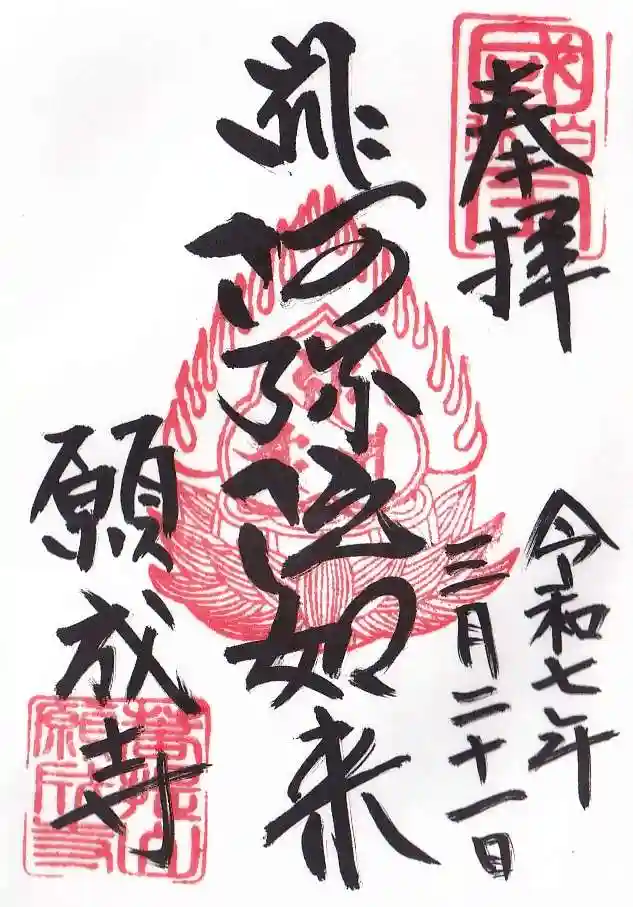 奉拝
令和七年
三月二十一日
阿弥陀如来
願成寺